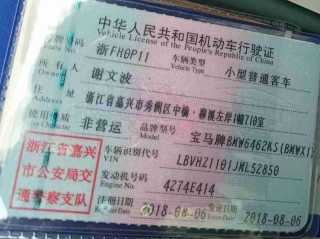 中华人民共和国机动车行驶证
Vehicle License of the People's Republic of China
浙FH0P11 车辆类型 小型普通客车
Vehicle Type
所有人 谢文波
住址 浙江省嘉兴市秀洲区中榆·雍溪左岸1幢710室
使用性质 非营运 品牌型号 宝马牌BMW6462KS(BMWX1)
浙江省嘉兴
市公安局交
通警察支队
车辆识别代号 LBVHZ1101JML52850
VIN
发动机号码 4274E414
Engine No.
注册日期 2018-08-06 发证日期 2018-08-06
Register Date